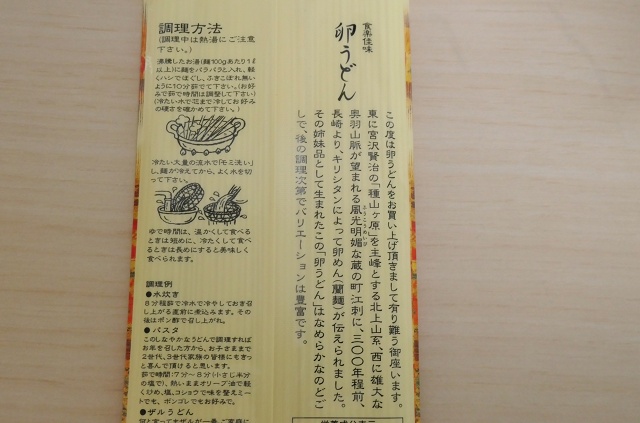 食楽佳味
卵うどん
この度は卵うどんをお買い上げ頂きまして有り難う御座います。
東に宮沢賢治の「種山ヶ原」を主峰とする北上山系、西に雄大な
奥羽山脈が望まれる風光明媚な蔵の町江刺に、三〇〇年程前、
ふうこうめいび
長崎より、キリシタンによって卵めん(蘭麺)が伝えられました。
その姉妹品として生まれたこの「卵うどん」はなめらかなのどご
しで、後の調理次第でバリエーションは豊富です。
調理方法
(調理中は熱湯にご注意
下さい。)
沸騰したお湯(麺100gあたり1ℓ
以上)に麺をバラバラと入れ、軽
くハシでほぐし、ふきこぼれ無い
ように10分茹でて下さい。(お好
みで茹で時間は調整して下さい)
(冷たい水で芯まで冷してお好み
の硬さを確かめて下さい。)
冷たい大量の流水で「モミ洗い」
し、麺が冷えてから、よく水を切
って下さい。
ゆで時間は、温かくして食べる
ときは短めに、冷たくして食べ
るときは長めにすると美味しく
食べられます。
調理例
●水炊き
8分程茹で冷水で冷やしておき召
し上がる直前に煮込みます。その
後はポン酢で召し上がれ。
●パスタ
このしなやかなうどんで調理すれば
お年を召した方から、お子さままで
2世代、3世代家族の皆様にもきっ
と喜んで頂けると思います。
茹で時間:7分〜8分(小さじ半分
の塩で)、熱いままオリーブ油で軽
くひめ、塩、コショウで味を整えミート
でも、ボンゴレでもお好みで。
●ザルうどん